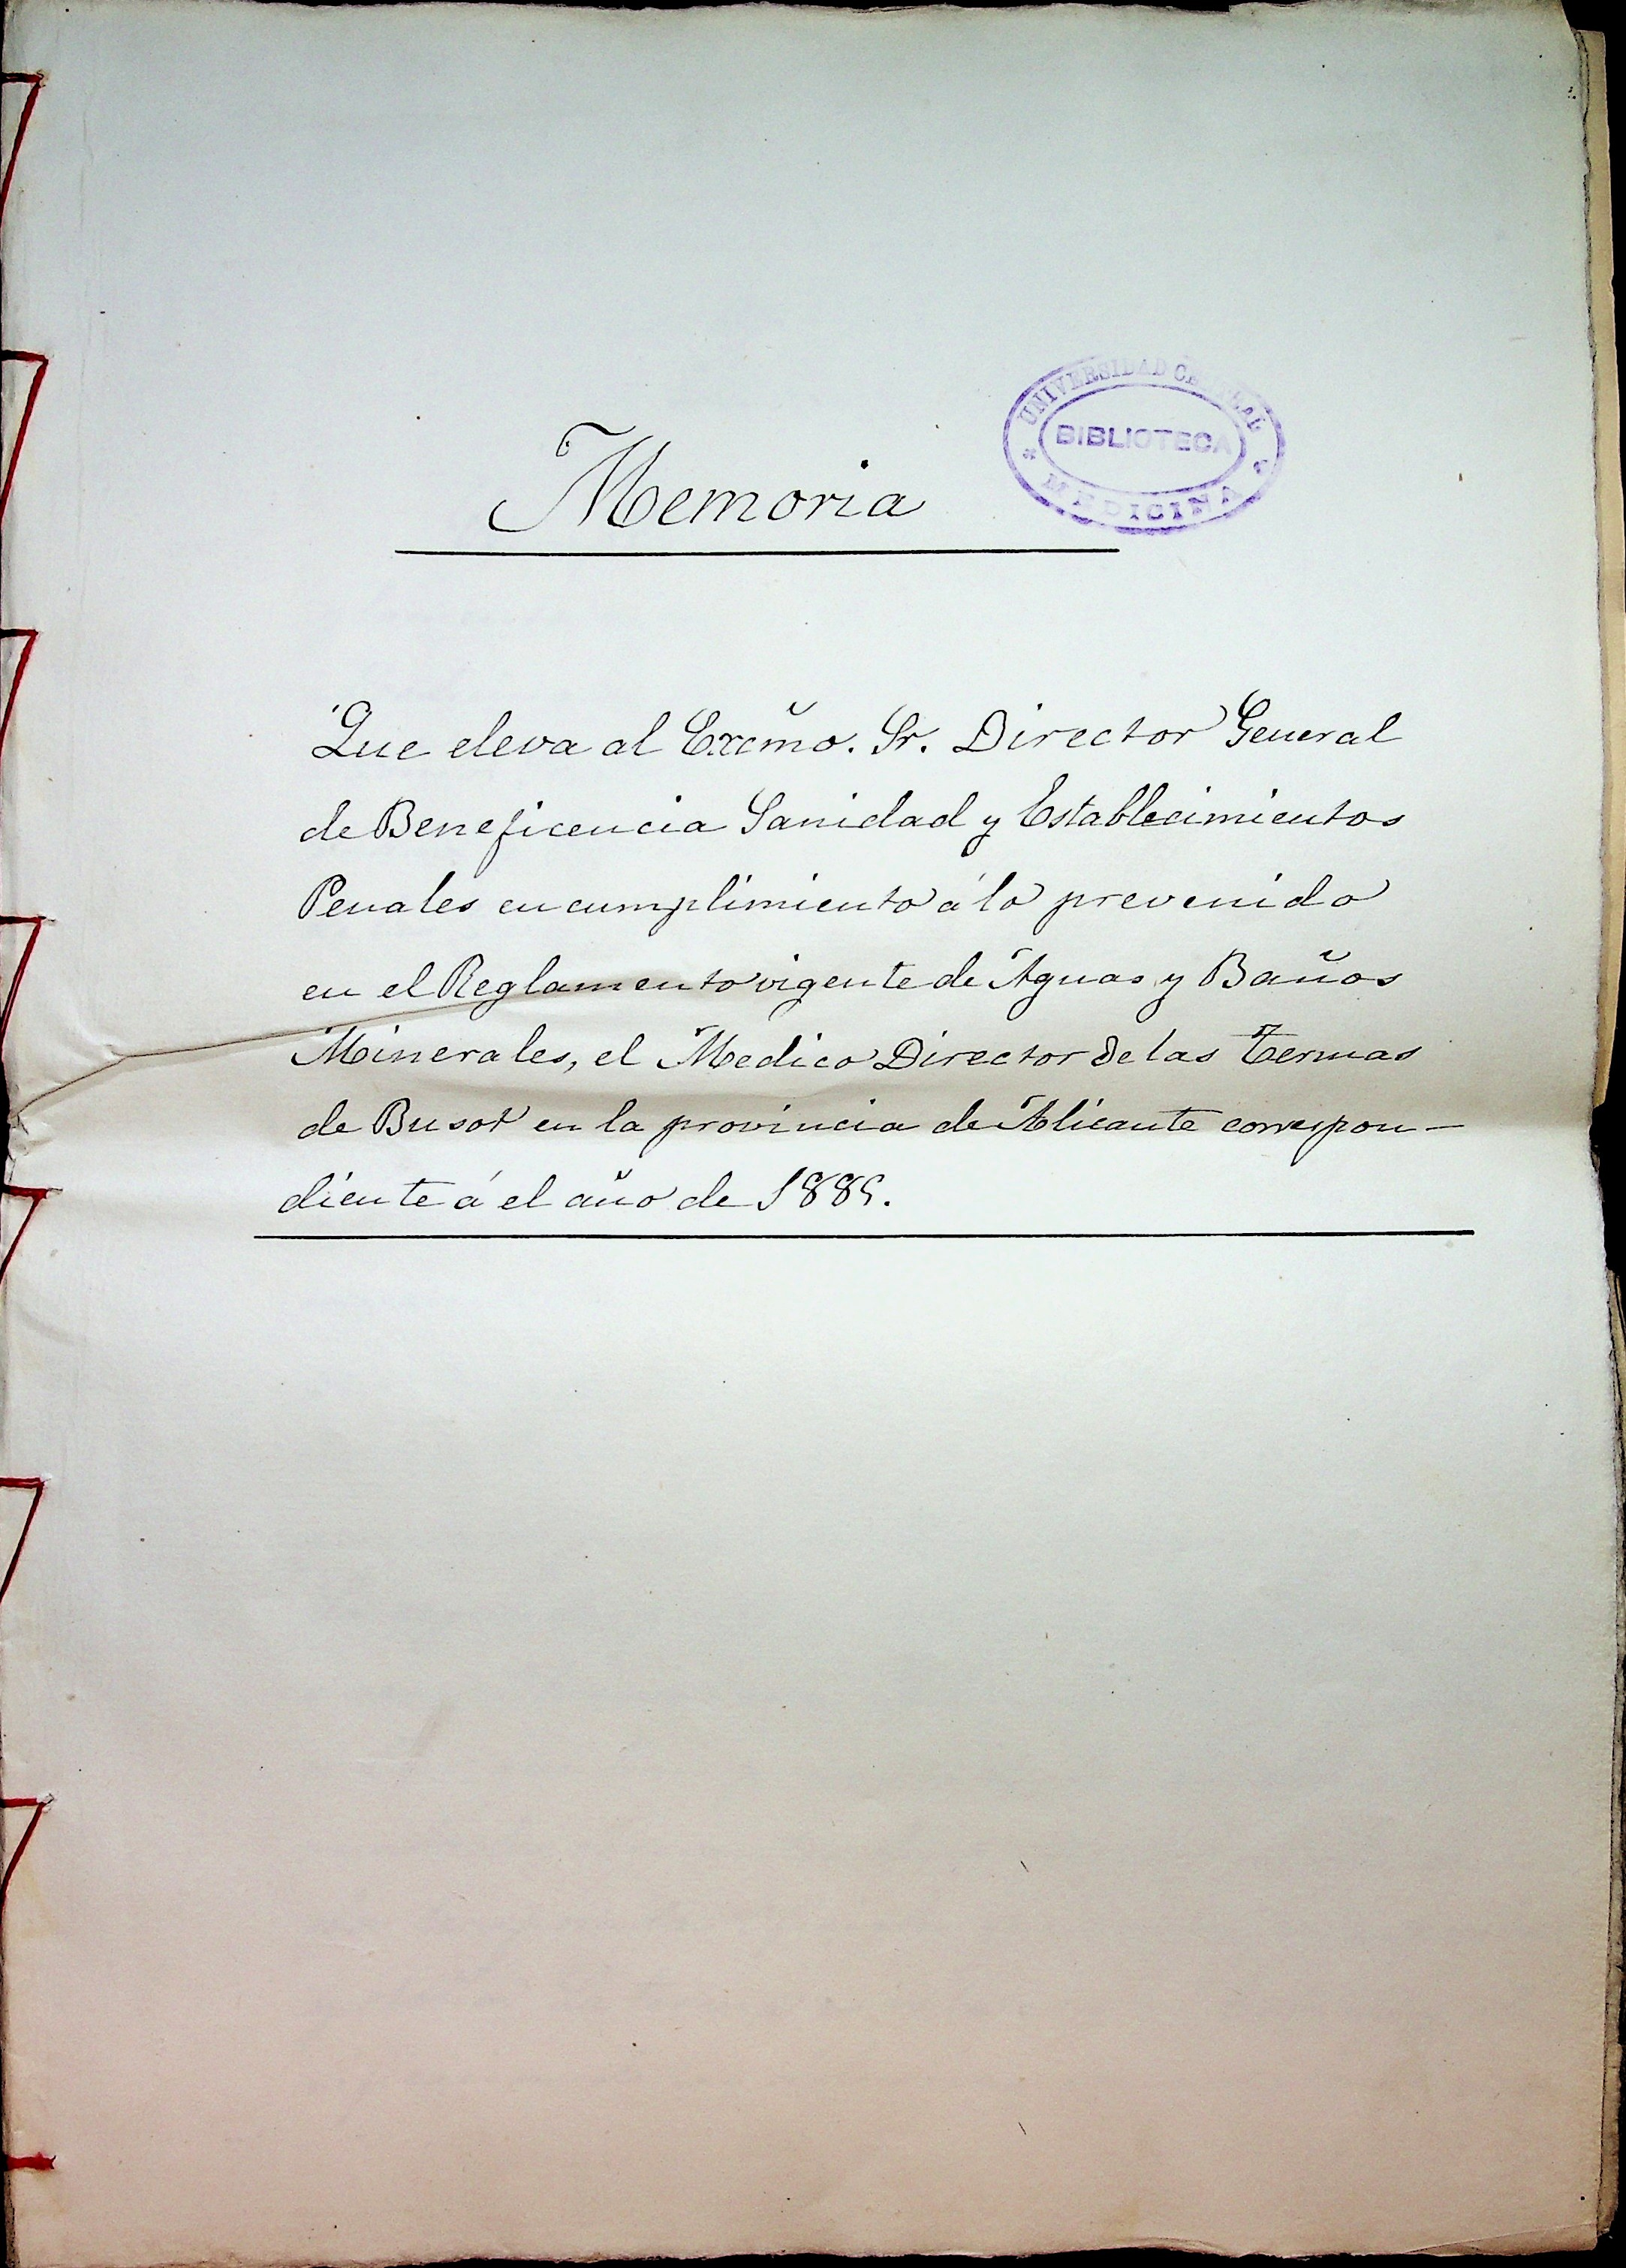 UNIVERSIDAD CENTRAL
BIBLIOTECA
MEDICINA
Memoria
Que eleva al Excmo. Sr. Director General
de Beneficencia Sanidad y Establecimientos
Penales en cumplimiento á lo prevenido
en el Reglamento vigente de Aguas y Baños
Minerales, el Medico Director de las Termas
de Busot en la provincia de Alicante correspon-
diente á el año de